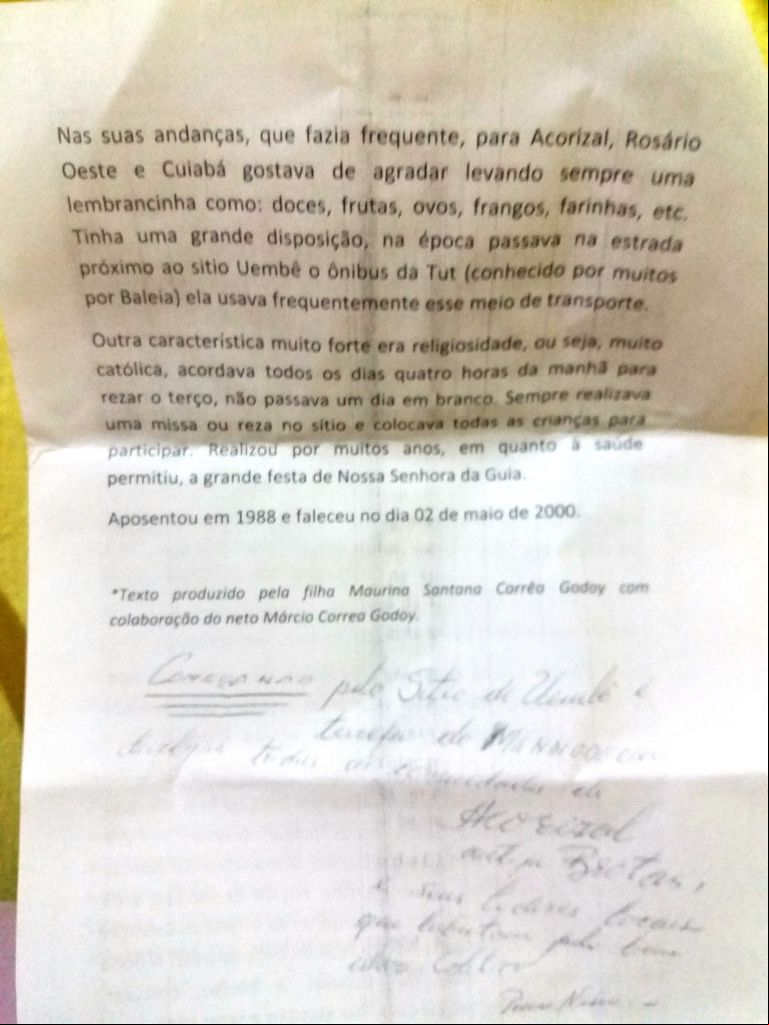 Nas suas andanças, que fazia frequente, para Acorizal, Rosário
Oeste e Cuiabá gostava de agradar levando sempre uma
lembrancinha como: doces, frutas, ovos, frangos, farinhas, etc.
Tinha uma grande disposição, na época passava na estrada
próximo ao sitio Uembê o ônibus da Tut (conhecido por muitos
por Baleia) ela usava frequentemente esse meio de transporte.
Outra característica muito forte era religiosidade, ou seja, muito
católica, acordava todos os dias quatro horas da manhã para
rezar o terço, não passava um dia em branco. Sempre realizava
uma missa ou reza no sítio e colocava todas as crianças para
participar. Realizou por muitos anos, em quanto à saúde
permitiu, a grande festa de Nossa Senhora da Guia.
Aposentou em 1988 e faleceu no dia 02 de maio de 2000.
*Texto produzido pela filha Maurina Santana Corrêa Godoy com
colaboração do neto Márcio Correa Godoy.
pelo Sitio de Uembê e
todas as comunidades de
Acorizal
antiga Brotas,
e seus lideres locais
que lutam pelo bem